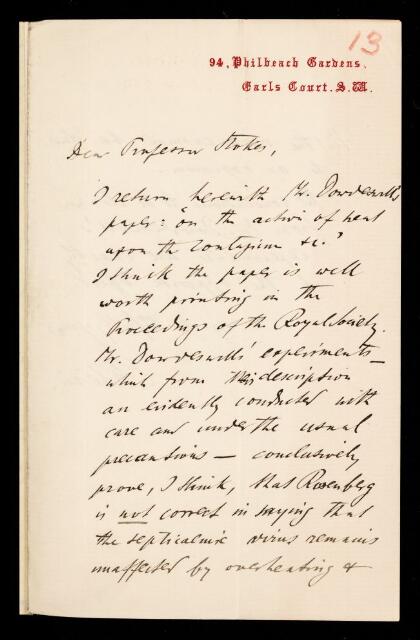 13
94, Philbeach Gardens,
Earls Court. S.W.
Dear Professor Stokes,
I return herewith Mr. Dowdeswell's
paper: "on the action of heat
upon the Contagium &c."
I think the paper is well
worth printing in the
Proceedings of the Royal Society.
Mr. Dowdeswell's experiments –
which from this description
are evidently conducted with
care and under the usual
precautions – conclusively
prove, I think, that Rosenberg
is not correct in saying that
the septicaemic virus remains
unaffected by overheating &